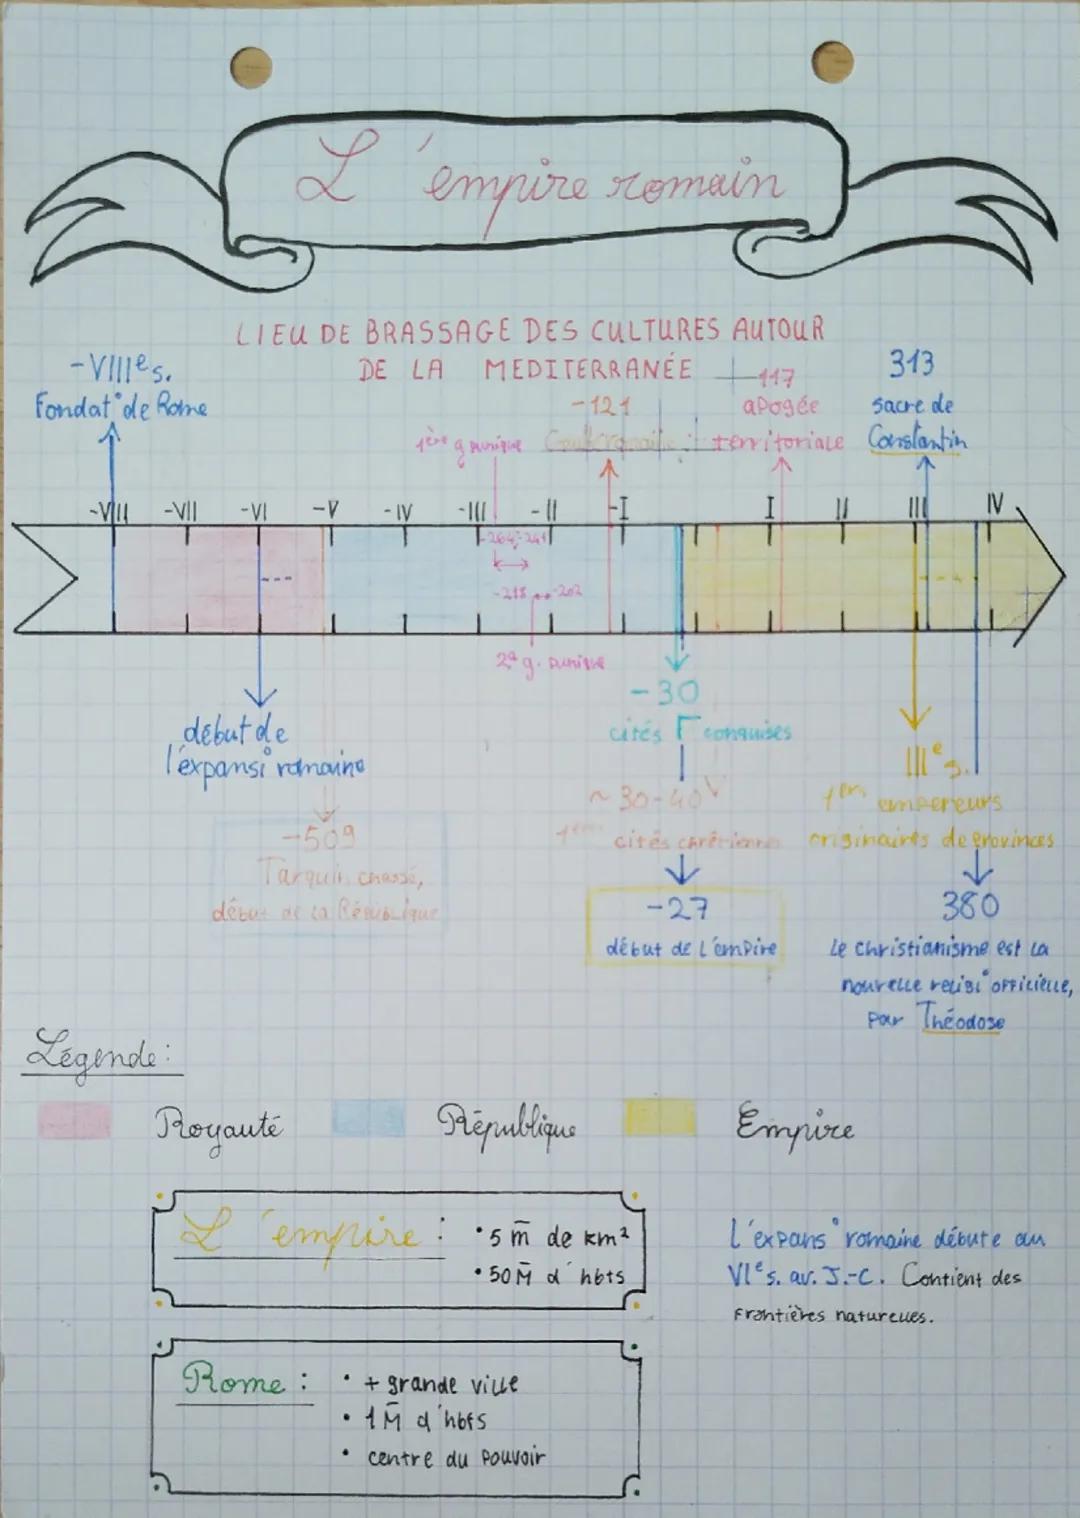 L'empire romain
LIEU DE BRASSAGE DES CULTURES AUTOUR
DE LA MEDITERRANÉE
-VIIIe s.
Fondat° de Rome
1ère g punique
-121
Gaule romaine
117
apogée
territoriale
313
sacre de
Constantin
-VIII -VII -VI -V -IV -III -II -I I II III IV
-264;-241
-218 ↔ -202
2e g. punique
début de
l'expansi° romaine
-509
Tarquin chassé,
début de la République
-30
cités Γ conquises
~30-40
1ères cités chrétiennes
-27
début de l'empire
IIIe s.
1ers empereurs
originaires de provinces
380
Le christianisme est la
nouvelle religi° officielle,
par Théodose
Légende :
Royauté République Empire
L'empire :
• 5 m̄ de km²
• 50 M̄ d'hbts
l'expans° romaine débute au
VIe s. av. J.-C. Contient des
frontières naturelles.
Rome :
• + grande ville
• 1 M̄ d'hbts
• centre du pouvoir